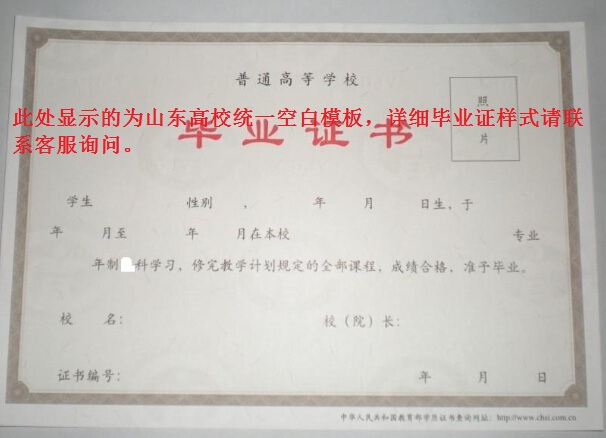 普通高等学校
照
片
此处显示的为山东高校统一空白模板，详细毕业证样式请联
系客服询问。
毕业证书
学生 性别 ， 年 月 日生，于
年 月至 年 月在本校 专业
年制 科学习，修完教学计划规定的全部课程，成绩合格，准予毕业。
校 名： 校（院）长：
证书编号： 年 月 日
中华人民共和国教育部学历证书查询网址：http://www.chsi.com.cn